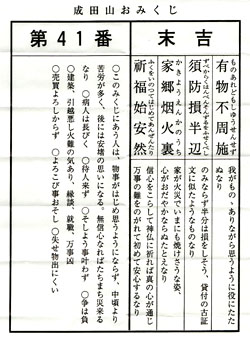 成田山おみくじ
第41番
末吉
ものあれどもしゅうせんせず
有物不周施
我がもの、ありながら思うように役にたたぬなり
すべからくはんぺんをそんずるをふせぐべし
須防損半辺
のみならず半分は損をしそう、貸付の古証文に似たようなものなり
かきょうえんかのうち
家郷烟火裏
家が火災でいまにも焼けそうな姿、心がおだやかならぬたとえなり
ふくをいのつてはじめてあんぜんたり
祈福始安然
信心をこらして神仏に祈れば真の心が通じ万事の難をのがれて初めて安心するなり
○このみくじにあう人は、物事がはじめ思うようにならず、中頃より苦労が多く、後には安堵の思いになる。無信心なればたちまち災来るなり ○病人は長びく ○待人来ず ○そしよう事叶わず ○争は負 ○建築、引越悪し火難の気あり、縁談、就職、万事凶 ○売買よろしからず ○よろこび事おそし ○失せ物出にくい